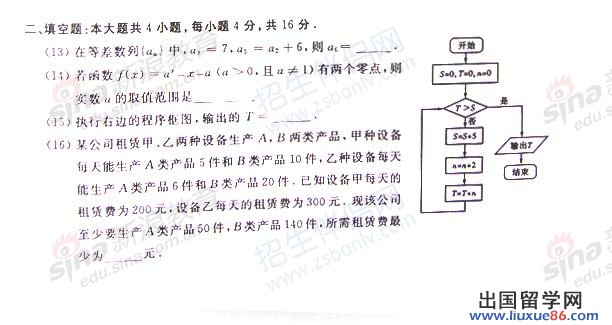 二、填空题:本大题共4小题,每小题4分,共16分.
(13)在等差数列{aₙ}中,a₃=7,a₅=a₂+6,则a₆=____.
(14)若函数f(x)=aˣ-x-a(a>0,且a≠1)有两个零点,则
实数a的取值范围是____.
(15)执行右边的程序框图,输出的T=____.
(16)某公司租赁甲、乙两种设备生产A,B两类产品,甲种设备
每天能生产A类产品5件和B类产品10件,乙种设备每天
能生产A类产品6件和B类产品20件.已知设备甲每天的
租赁费为200元,设备乙每天的租赁费为300元.现该公司
至少要生产A类产品50件,B类产品140件,所需租赁费最
少为____元.
开始
S=0,T=0,n=0
T>S
是
否
S=S+5
输出T
n=n+2
结束
T=T+n
sina新浪教育
edu.sina.com
招生伴侣
www.zsbanlv.com
出国留学网
www.liuxue86.com